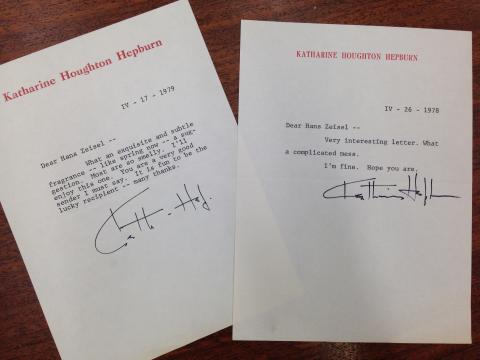 Katharine Houghton Hepburn
IV - 17 - 1979
Dear Hans Zeisel --
What an exquisite and subtle
fragrance -- like spring now -- a sug-
gestion. Most are so smelly. I'll
enjoy this one. You are a very good
sender I must say. It is fun to be the
lucky recipient -- many thanks.
KATHARINE HOUGHTON HEPBURN
IV - 26 - 1978
Dear Hans Zeisel --
Very interesting letter. What
a complicated mess.
I'm fine. Hope you are.